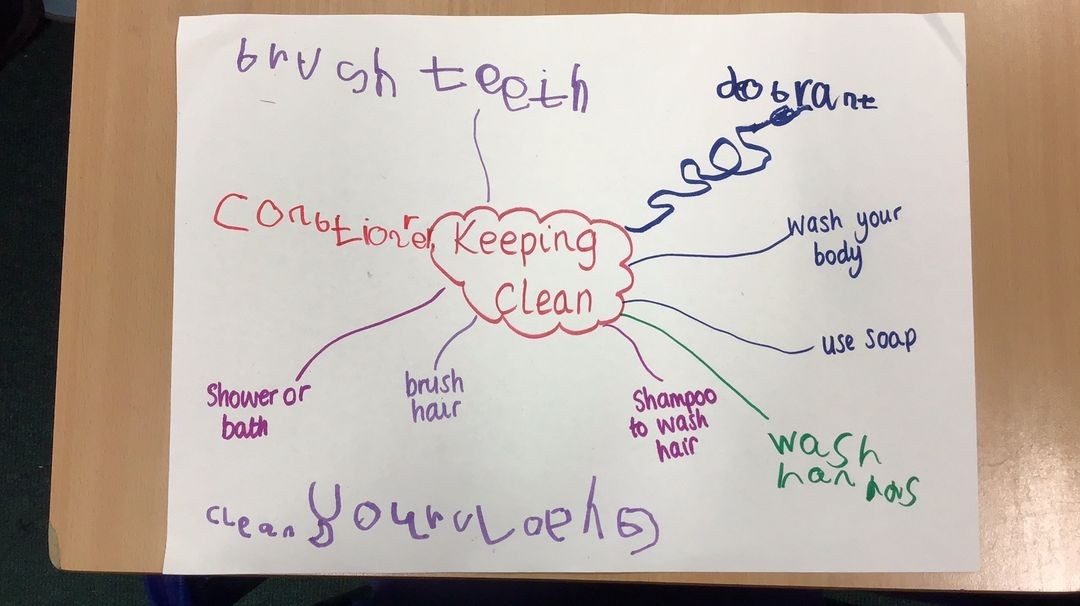 brush teeth
dobrant
Conotioner
Keeping
Clean
wash your
body
use soap
Shower or
bath
brush
hair
Shampoo
to wash
hair
wash
han
clean your